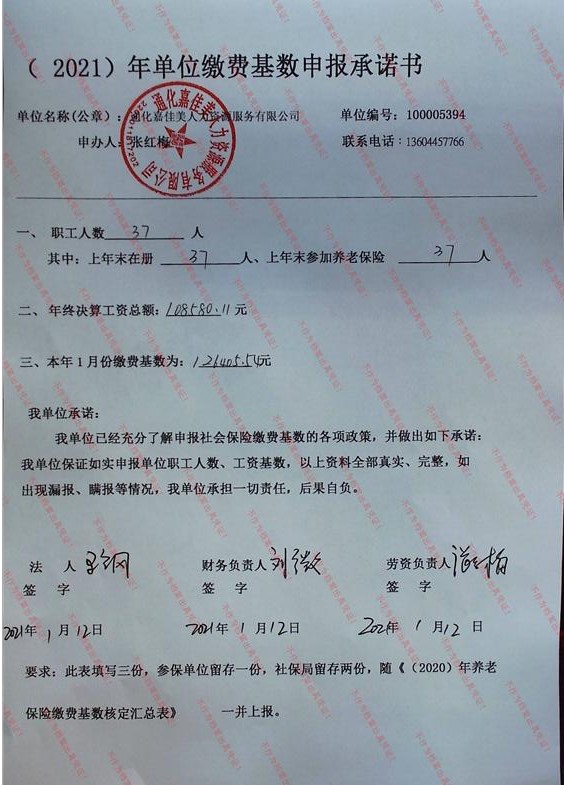 （ 2021）年单位缴费基数申报承诺书
单位名称(公章)：通化嘉佳美人力资源服务有限公司 单位编号：100005394
申办人：张红梅 联系电话：13604457766
通化嘉佳美人力资源服务有限公司
一、 职工人数 37 人
其中：上年末在册 37 人、上年末参加养老保险 37 人
二、年终决算工资总额：108580.11元
三、本年1月份缴费基数为：126405.54元
我单位承诺：
我单位已经充分了解申报社会保险缴费基数的各项政策，并做出如下承诺：
我单位保证如实申报单位职工人数、工资基数，以上资料全部真实、完整，如
出现漏报、瞒报等情况，我单位承担一切责任，后果自负。
法 人 财务负责人 刘 劳资负责人
签 字 签 字 签 字
2021年 1月12日 2021年 1月12日 2021年 1月12日
要求：此表填写三份，参保单位留存一份，社保局留存两份，随《（2020）年养老
保险缴费基数核定汇总表》 一并上报。